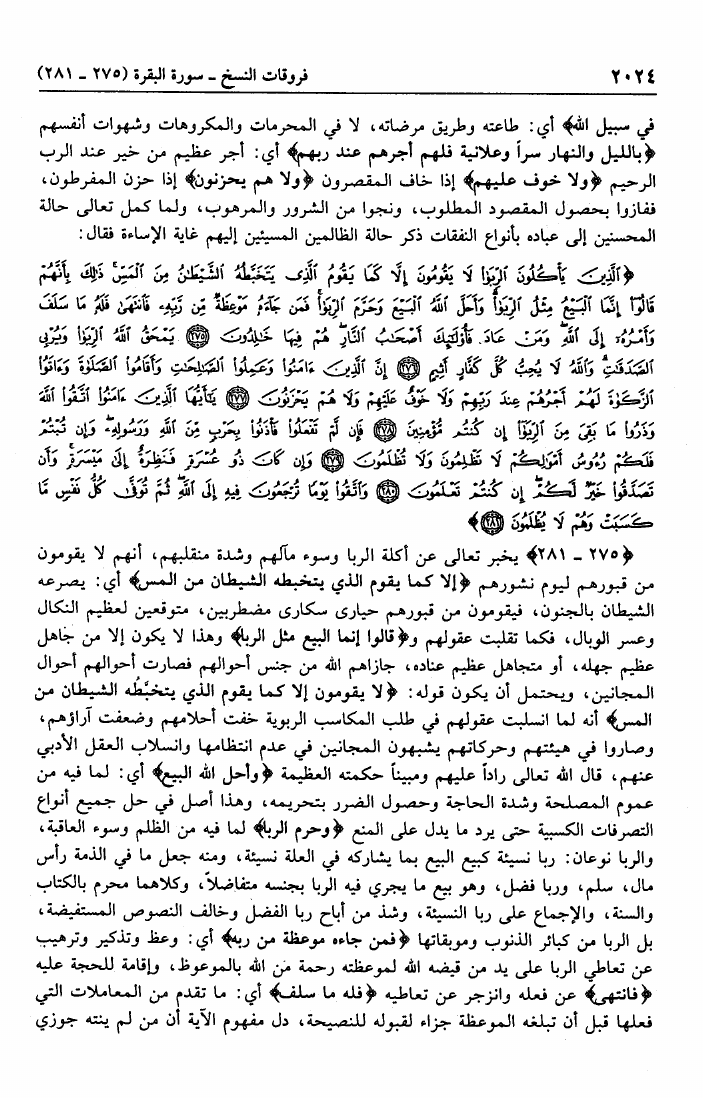 ٢٠٢٤ فروقات النسخ ـ سورة البقرة (٢٧٥ ـ ٢٨١)
في سبيل الله﴾ أي: طاعته وطريق مرضاته، لا في المحرمات والمكروهات وشهوات أنفسهم
﴿بالليل والنهار سراً وعلانية فلهم أجرهم عند ربهم﴾ أي: أجر عظيم من خير عند الرب
الرحيم ﴿ولا خوف عليهم﴾ إذا خاف المقصرون ﴿ولا هم يحزنون﴾ إذا حزن المفرطون،
ففازوا بحصول المقصود المطلوب، ونجوا من الشرور والمرهوب، ولما كمل تعالى حالة
المحسنين إلى عباده بأنواع النفقات ذكر حالة الظالمين المسيئين إليهم غاية الإساءة فقال:
﴿ٱلَّذِينَ يَأْكُلُونَ ٱلرِّبَوٰا۟ لَا يَقُومُونَ إِلَّا كَمَا يَقُومُ ٱلَّذِى يَتَخَبَّطُهُ ٱلشَّيْطَٰنُ مِنَ ٱلْمَسِّ ۚ ذَٰلِكَ بِأَنَّهُمْ
قَالُوٓا۟ إِنَّمَا ٱلْبَيْعُ مِثْلُ ٱلرِّبَوٰا۟ ۗ وَأَحَلَّ ٱللَّهُ ٱلْبَيْعَ وَحَرَّمَ ٱلرِّبَوٰا۟ ۚ فَمَن جَآءَهُۥ مَوْعِظَةٌ مِّن رَّبِّهِۦ فَٱنتَهَىٰ فَلَهُۥ مَا سَلَفَ
وَأَمْرُهُۥٓ إِلَى ٱللَّهِ ۖ وَمَنْ عَادَ فَأُو۟لَٰٓئِكَ أَصْحَٰبُ ٱلنَّارِ ۖ هُمْ فِيهَا خَٰلِدُونَ ﴿٢٧٥﴾ يَمْحَقُ ٱللَّهُ ٱلرِّبَوٰا۟ وَيُرْبِى
ٱلصَّدَقَٰتِ ۗ وَٱللَّهُ لَا يُحِبُّ كُلَّ كَفَّارٍ أَثِيمٍ ﴿٢٧٦﴾ إِنَّ ٱلَّذِينَ ءَامَنُوا۟ وَعَمِلُوا۟ ٱلصَّٰلِحَٰتِ وَأَقَامُوا۟ ٱلصَّلَوٰةَ وَءَاتَوُا۟
ٱلزَّكَوٰةَ لَهُمْ أَجْرُهُمْ عِندَ رَبِّهِمْ وَلَا خَوْفٌ عَلَيْهِمْ وَلَا هُمْ يَحْزَنُونَ ﴿٢٧٧﴾ يَٰٓأَيُّهَا ٱلَّذِينَ ءَامَنُوا۟ ٱتَّقُوا۟ ٱللَّهَ
وَذَرُوا۟ مَا بَقِىَ مِنَ ٱلرِّبَوٰٓا۟ إِن كُنتُم مُّؤْمِنِينَ ﴿٢٧٨﴾ فَإِن لَّمْ تَفْعَلُوا۟ فَأْذَنُوا۟ بِحَرْبٍ مِّنَ ٱللَّهِ وَرَسُولِهِۦ ۖ وَإِن تُبْتُمْ
فَلَكُمْ رُءُوسُ أَمْوَٰلِكُمْ لَا تَظْلِمُونَ وَلَا تُظْلَمُونَ ﴿٢٧٩﴾ وَإِن كَانَ ذُو عُسْرَةٍ فَنَظِرَةٌ إِلَىٰ مَيْسَرَةٍ ۚ وَأَن
تَصَدَّقُوا۟ خَيْرٌ لَّكُمْ ۖ إِن كُنتُمْ تَعْلَمُونَ ﴿٢٨٠﴾ وَٱتَّقُوا۟ يَوْمًا تُرْجَعُونَ فِيهِ إِلَى ٱللَّهِ ۖ ثُمَّ تُوَفَّىٰ كُلُّ نَفْسٍ مَّا
كَسَبَتْ وَهُمْ لَا يُظْلَمُونَ ﴿٢٨١﴾﴾
﴿٢٧٥ ـ ٢٨١﴾ يخبر تعالى عن أكلة الربا وسوء مآلهم وشدة منقلبهم، أنهم لا يقومون
من قبورهم ليوم نشورهم ﴿إلا كما يقوم الذي يتخبطه الشيطان من المس﴾ أي: يصرعه
الشيطان بالجنون، فيقومون من قبورهم حيارى سكارى مضطربين، متوقعين لعظيم النكال
وعسر الوبال، فكما تقلبت عقولهم و﴿قالوا إنما البيع مثل الربا﴾ وهذا لا يكون إلا من جاهل
عظيم جهله، أو متجاهل عظيم عناده، جازاهم الله من جنس أحوالهم فصارت أحوالهم أحوال
المجانين، ويحتمل أن يكون قوله: ﴿لا يقومون إلا كما يقوم الذي يتخبَّطُه الشيطان من
المس﴾ أنه لما انسلبت عقولهم في طلب المكاسب الربوية خفت أحلامهم وضعفت آراؤهم،
وصاروا في هيئتهم وحركاتهم يشبهون المجانين في عدم انتظامها وانسلاب العقل الأدبي
عنهم، قال الله تعالى راداً عليهم ومبيناً حكمته العظيمة ﴿وأحل الله البيع﴾ أي: لما فيه من
عموم المصلحة وشدة الحاجة وحصول الضرر بتحريمه، وهذا أصل في حل جميع أنواع
التصرفات الكسبية حتى يرد ما يدل على المنع ﴿وحرم الربا﴾ لما فيه من الظلم وسوء العاقبة،
والربا نوعان: ربا نسيئة كبيع الربا بما يشاركه في العلة نسيئة، ومنه جعل ما في الذمة رأس
مال، سلم، وربا فضل، وهو بيع ما يجري فيه الربا بجنسه متفاضلاً، وكلاهما محرم بالكتاب
والسنة، والإجماع على ربا النسيئة، وشذ من أباح ربا الفضل وخالف النصوص المستفيضة،
بل الربا من كبائر الذنوب وموبقاتها ﴿فمن جاءه موعظة من ربه﴾ أي: وعظ وتذكير وترهيب
عن تعاطي الربا على يد من قيضه الله لموعظته رحمة من الله بالموعوظ، وإقامة للحجة عليه
﴿فانتهى﴾ عن فعله وانزجر عن تعاطيه ﴿فله ما سلف﴾ أي: ما تقدم من المعاملات التي
فعلها قبل أن تبلغه الموعظة جزاء لقبوله للنصيحة، دل مفهوم الآية أن من لم ينته جوزي